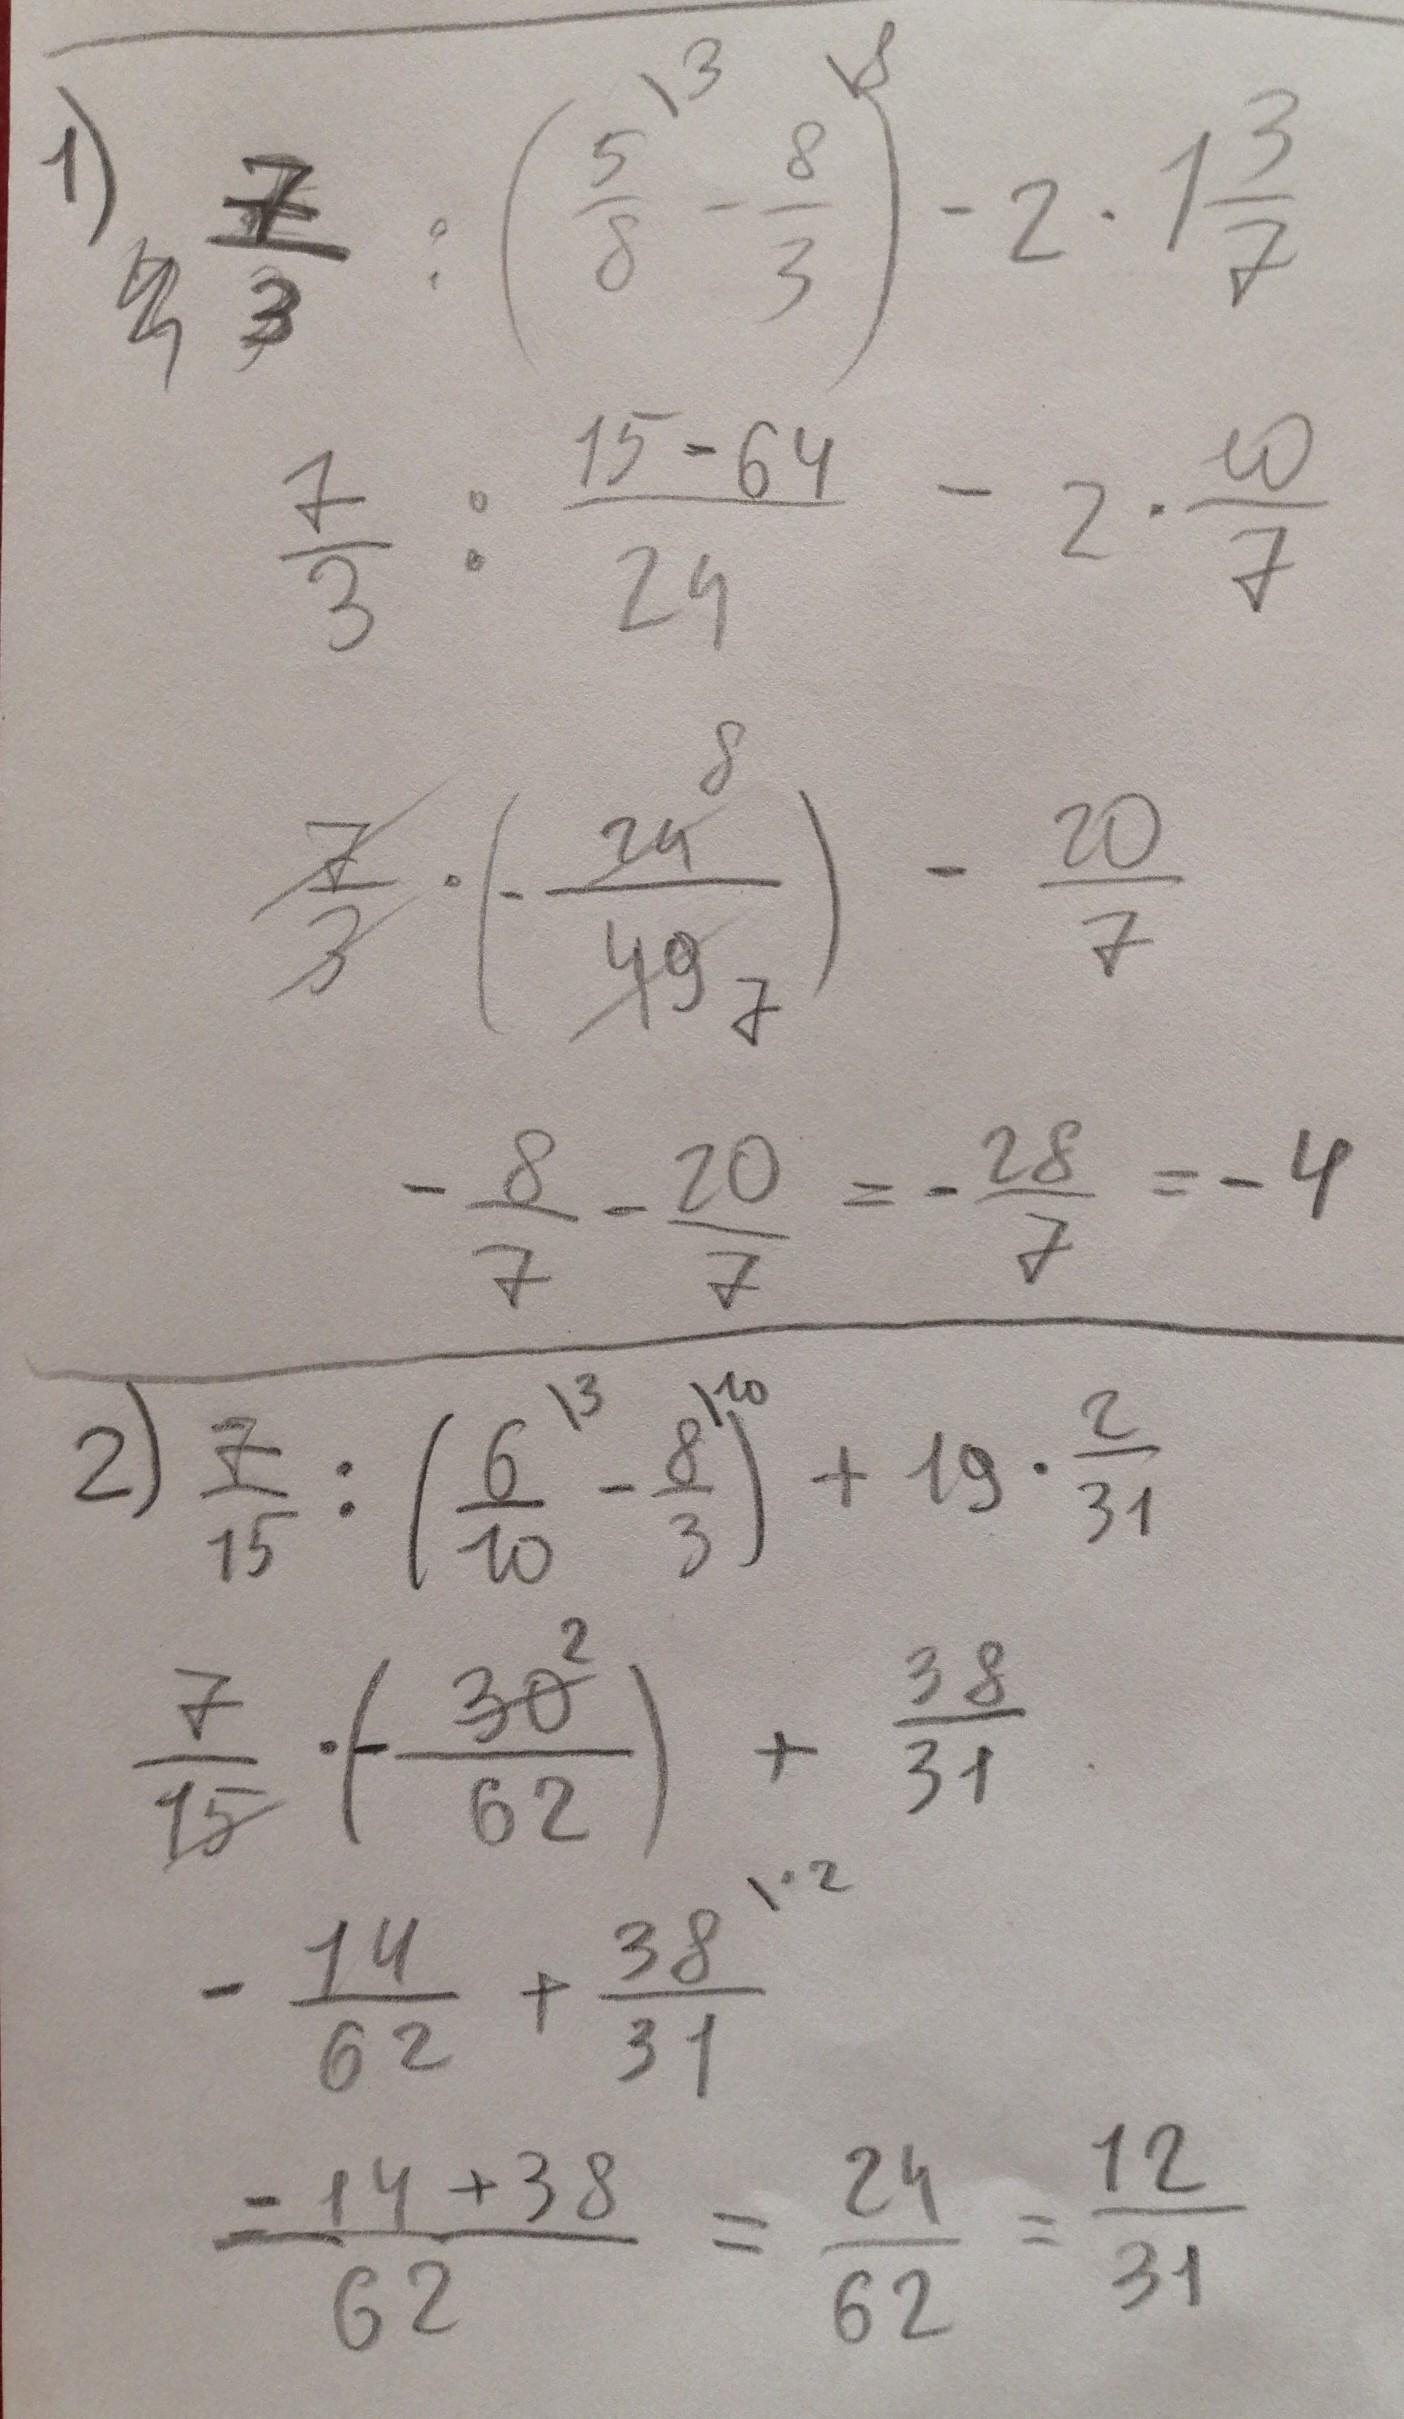 1) 7/3 : (5/8 \3 - 8/3 \8) - 2 · 1 3/7
7/3 : (15-64)/24 - 2 · 10/7
7/3 · (- 24/49) 8 7 - 20/7
- 8/7 - 20/7 = - 28/7 = - 4
2) 7/15 : (6/10 \3 - 8/3 \10) + 19 · 2/31
7/15 · (- 30/62) 2 + 38/31
- 14/62 + 38/31 \·2
(-14+38)/62 = 24/62 = 12/31